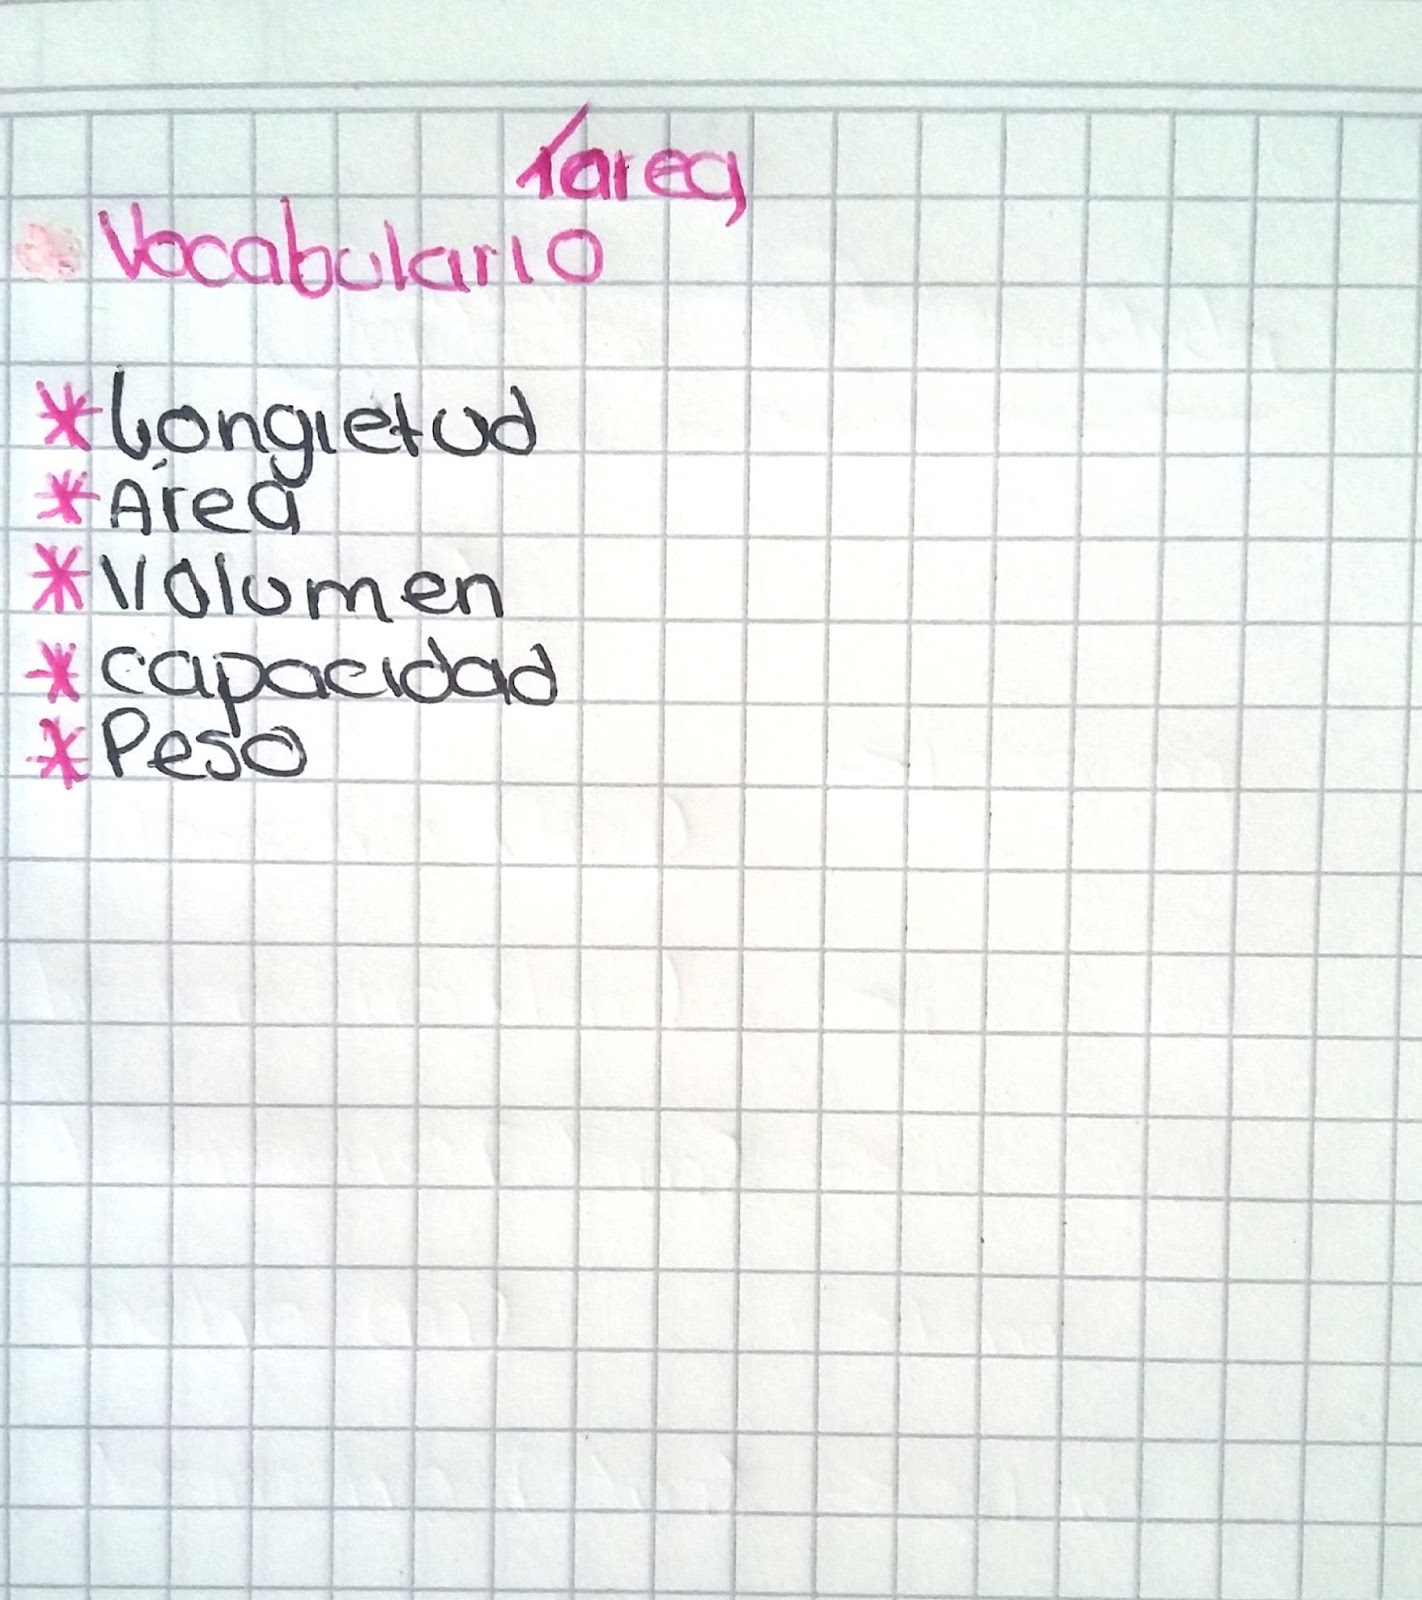 Tarea
Vocabulario
* Longietud
* Área
* Volumen
* capacidad
* Peso